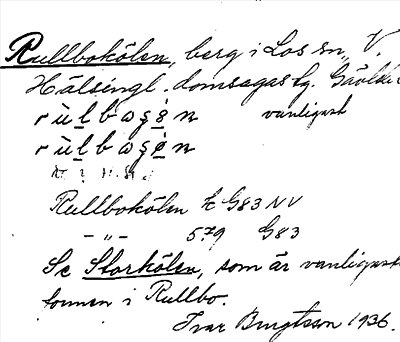 Rullbokölen, berg i Los sn, V.
Hälsingl. domsagas tg. Gävleb
rùlbωʂən vanligast
rùlbωʂen
Rullbokölen k G83 NV
–"– 579 G83
Se Storkölen, som är vanligast
formen i Rullbo.
Ivar Bengtsson 1936.